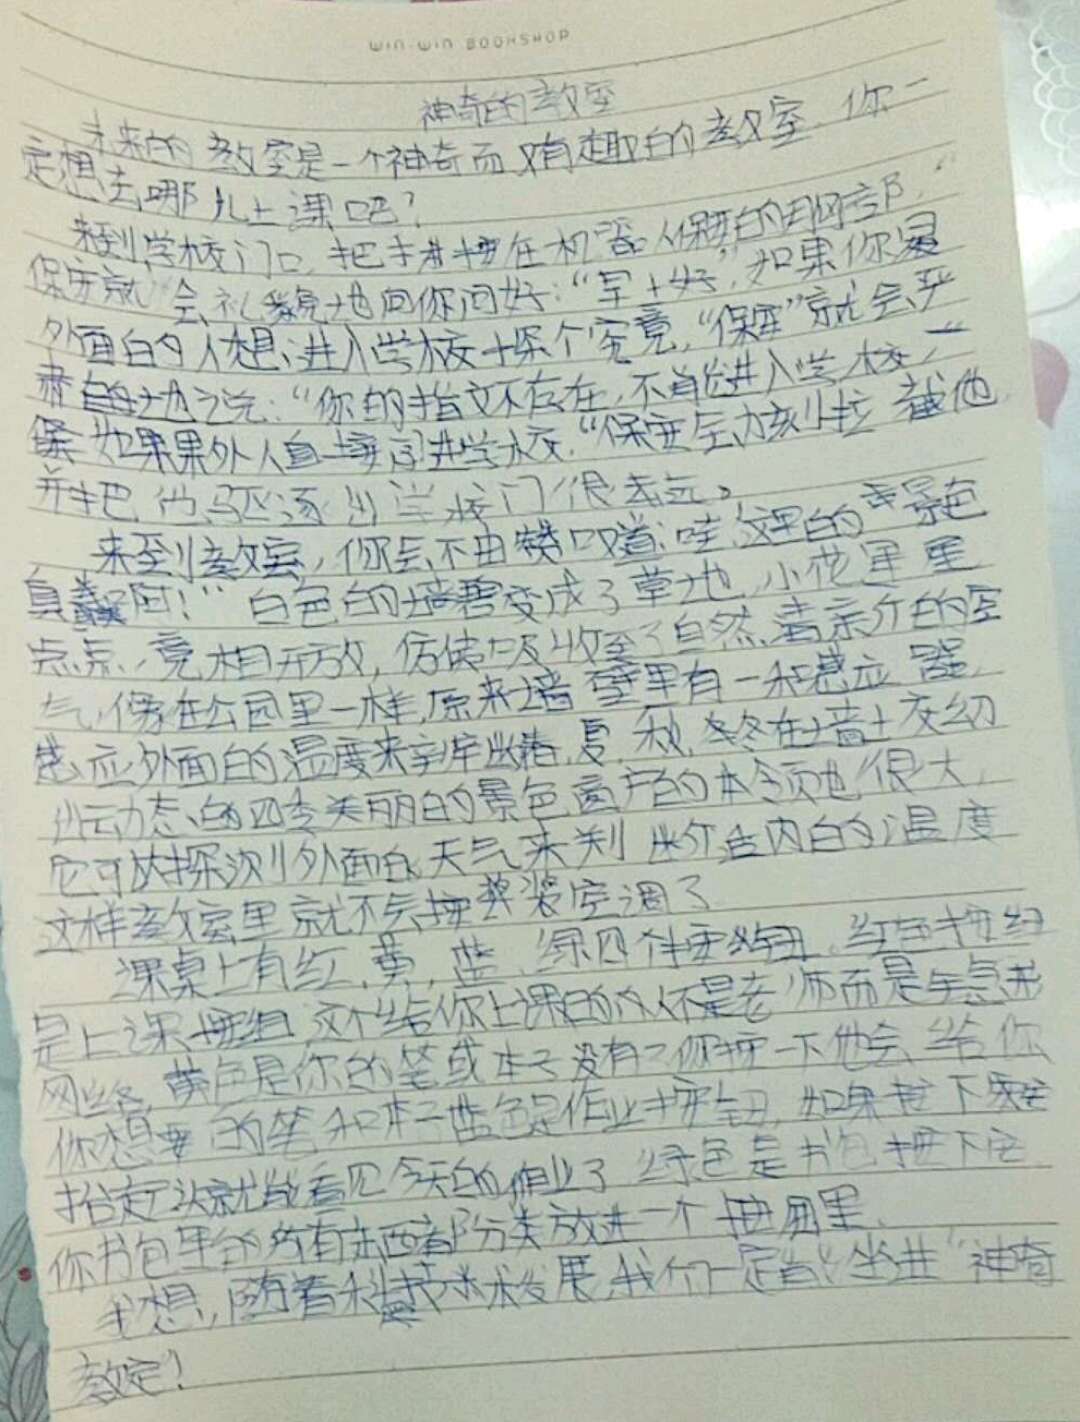 WIN-WIN BOOKSHOP
神奇的教室
未来的教室是一个神奇而又有趣的教室，你一
定想去哪儿上课吧？
来到学校门口，把手按在机器人保安的胸部，
保安就会礼貌地向你问好：“早上好”，如果你是
外面的人想进入学校探个究竟，“保安”就会严
肃的地说：“你的指纹不存在，不能进入学校，一
如果外人直接闯进学校，“保安”会 他
并把他驱逐出学校门很远。
来到教室，你会不由赞叹道：哇，这里的景色
真美啊！”白色的墙壁变成了草地，小花星星
点点，竞相开放，仿佛吸收到了自然 的空
气，像在公园里一样，原来墙壁里有一种感应器，
感应外面的温度来 出春，夏，秋，冬在墙上放幻
出动态的四季美丽的景色窗户的本领也很大，
它可以探测外面的天气来判 室内的温度
这样教室里就不会按装空调了
课桌上有红，黄，蓝，绿四个按钮，红色按纽
是上课按纽，这个给你上课的人不是老师而是
网络，黄色是你的笔或本子没有了你按一下他会给你
你想要的笔和本子蓝色是作业按钮，如果按下
抬起头就能看见今天的作业了 绿色是书包按下它
你书包里的所有东西都分类放进一个抽屉里。
我想，随着科技 术发展，我们一定能坐进“神奇
教室！